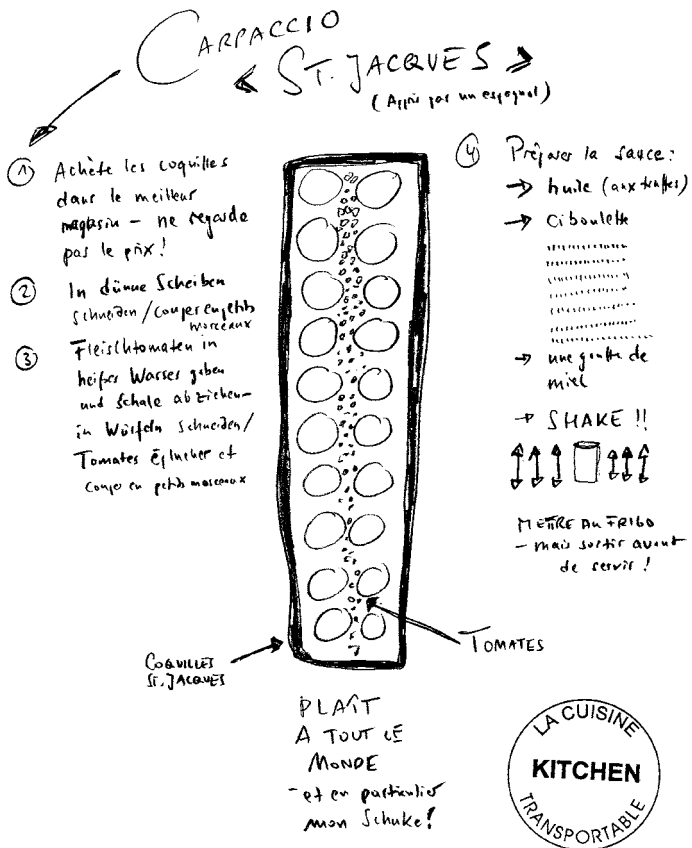 CARPACCIO
« ST. JACQUES »
(Appris par un espagnol)
① Achète les coquilles
dans le meilleur
magasin - ne regarde
pas le prix!
② In dünne Scheiben
schneiden / couper en petits
morceaux
③ Fleischtomaten in
heißes Wasser geben
und Schale abziehen -
in Würfeln schneiden /
Tomates éplucher et
couper en petits morceaux
④ Préparer la sauce:
→ huile (aux truffes)
→ ciboulette
→ une goutte de
miel
→ SHAKE !!
METTRE AU FRIGO
- mais sortir avant
de servir !
TOMATES
COQUILLES
ST. JACQUES
PLAÎT
A TOUT LE
MONDE
- et en particulier
mon Schuke!
LA CUISINE
KITCHEN
TRANSPORTABLE